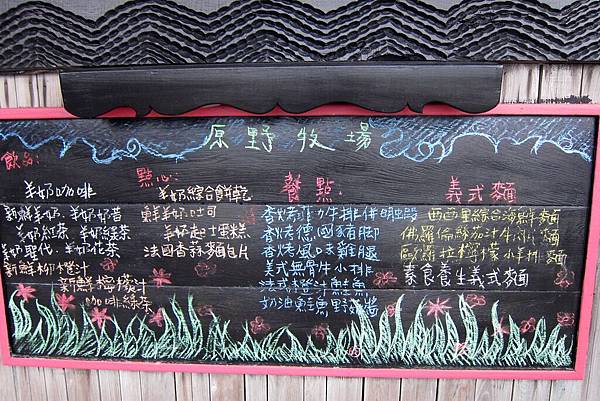 原野牧場
飲品:
羊奶咖啡
新鮮羊奶.羊奶奶昔
羊奶紅茶 羊奶綠茶
羊奶聖代.羊奶花茶
新鮮柳橙汁
新鮮檸檬汁
咖啡綠茶
點心:
羊奶綜合餅乾
鮮羊奶吐司
羊奶起士蛋糕
法國香蒜麵包片
餐點:
香烤菲力牛排併明蝦
香烤德國豬腳
香烤風味雞腿
美式無骨牛小排
法式橙汁鮭魚
奶油鮭魚野菇醬
義式麵
西西里綜合海鮮麵
佛羅倫絲茄汁牛肉麵
歐羅拉檸檬小羊麵
素食養生義式麵